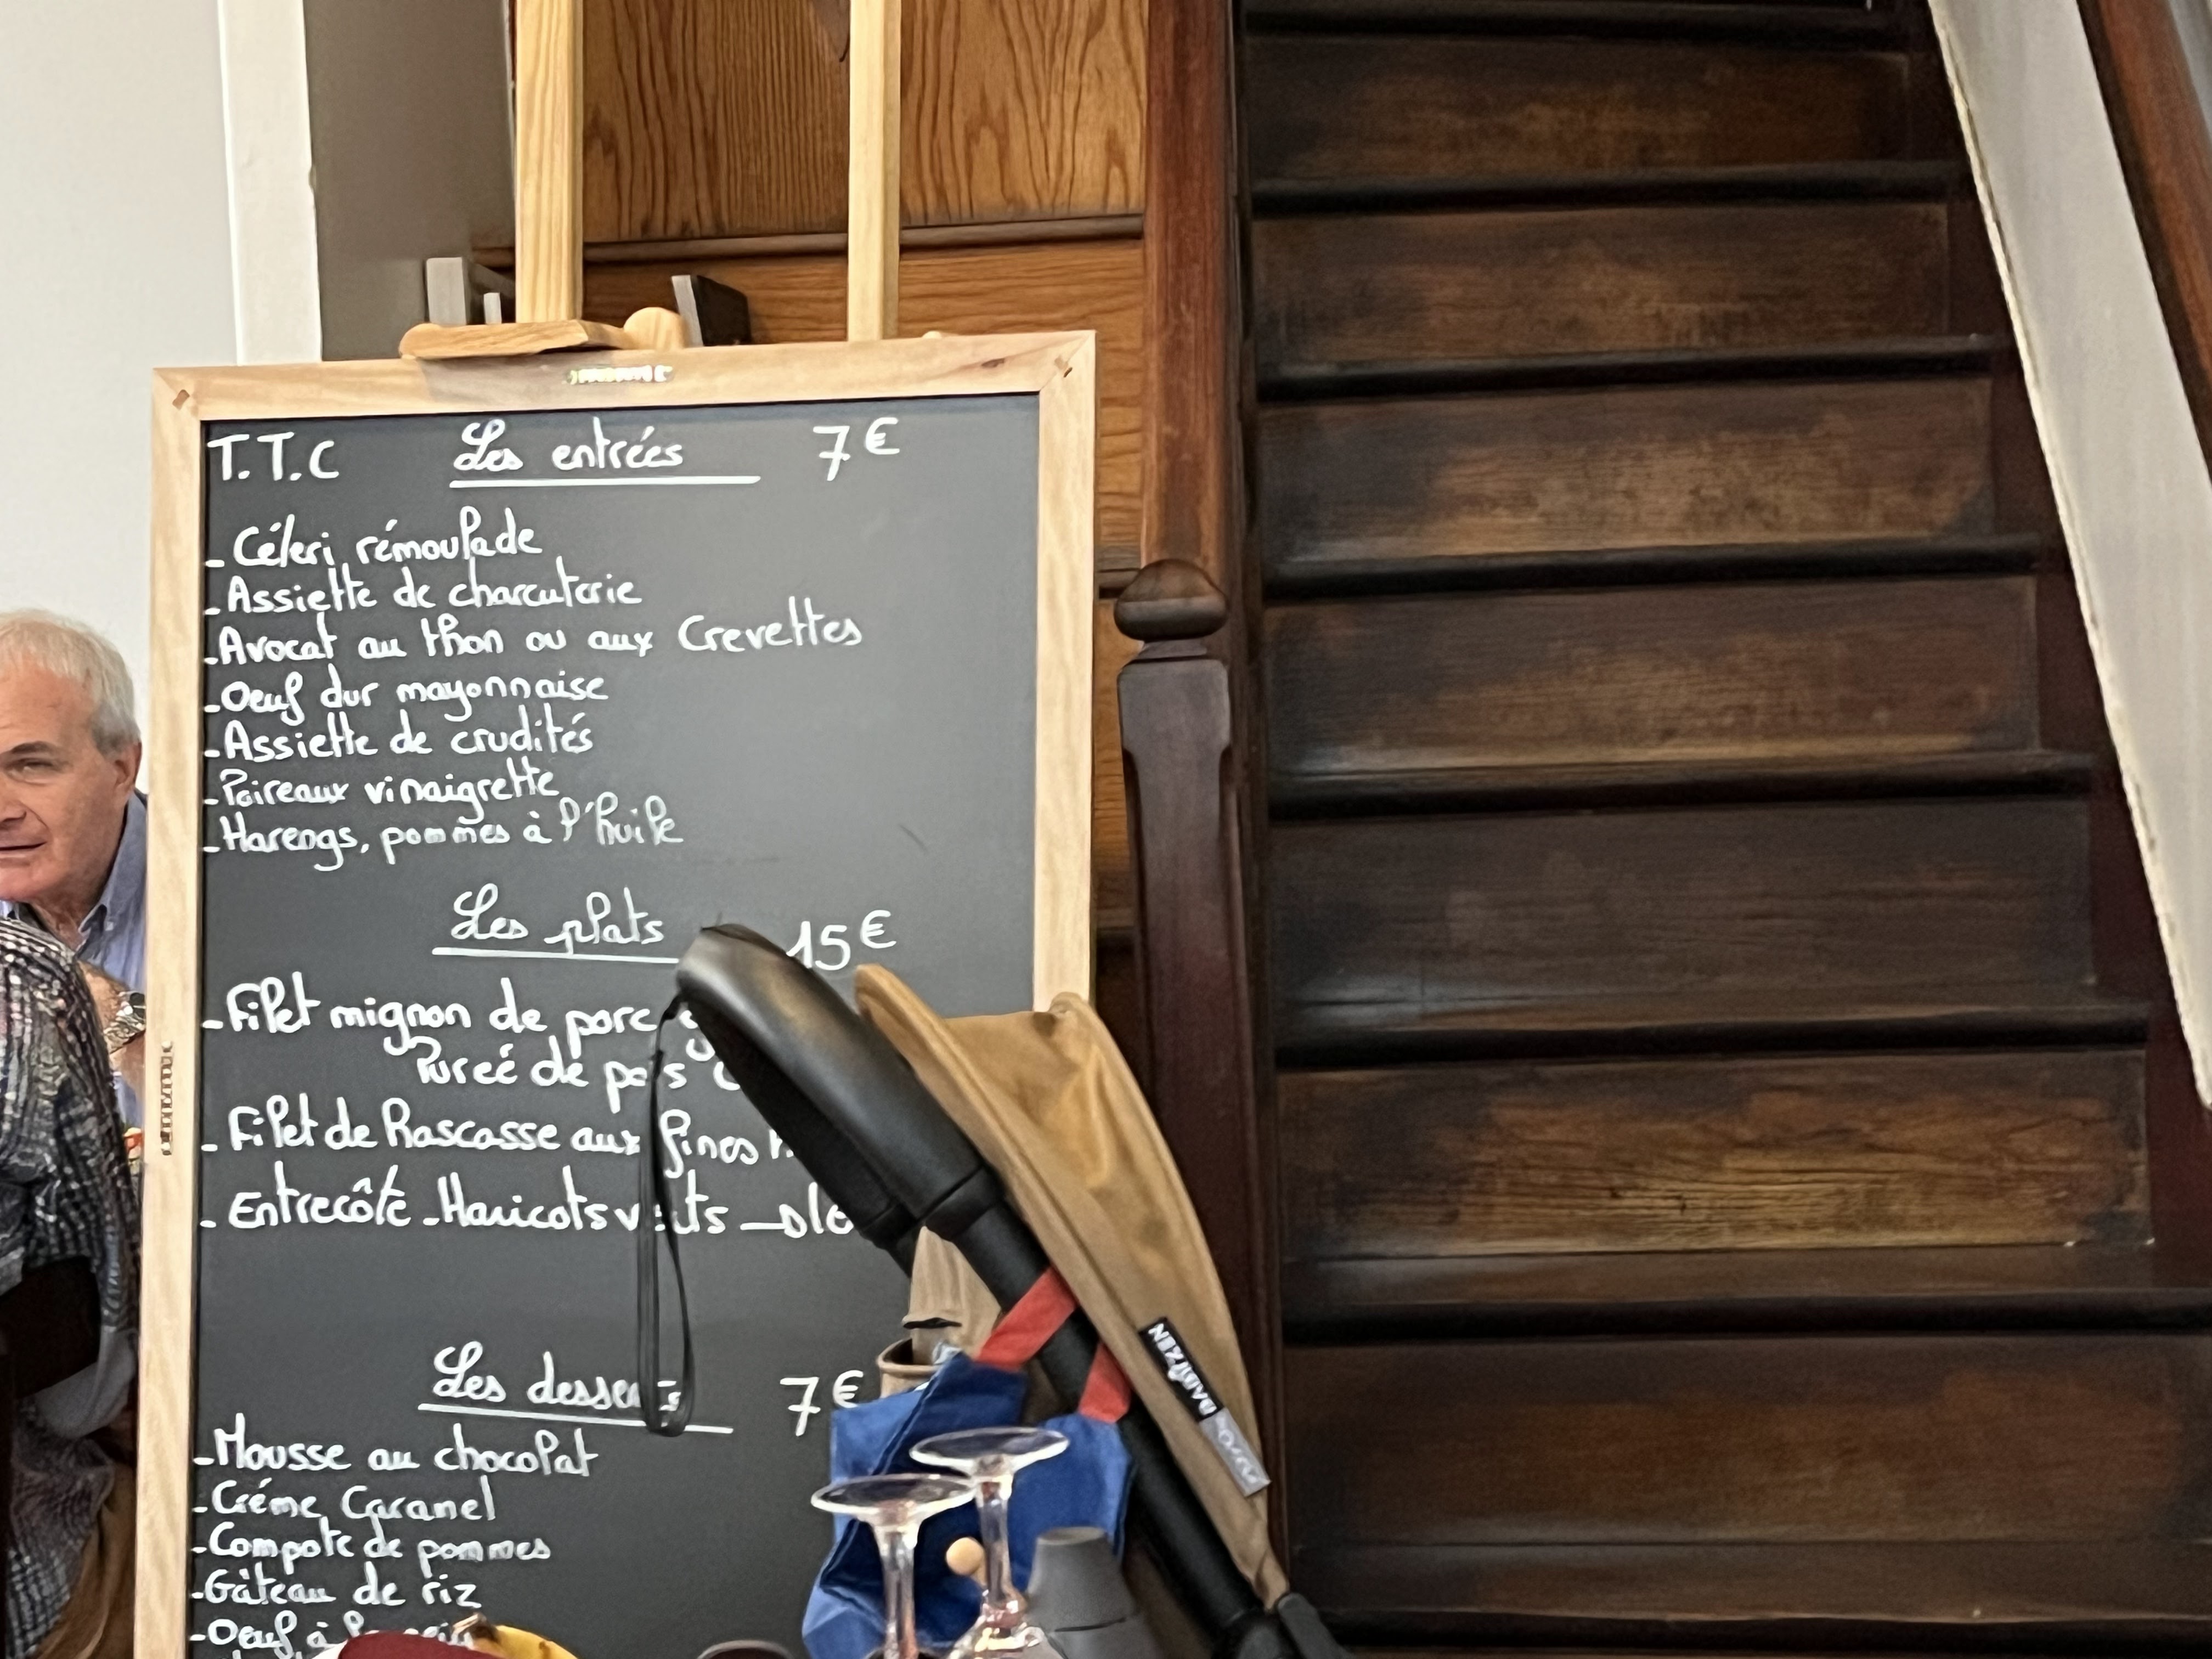 T.T.C Les entrées 7€
- Céleri rémoulade
- Assiette de charcuterie
- Avocat au thon ou aux Crevettes
- Oeuf dur mayonnaise
- Assiette de crudités
- Poireaux vinaigrette
- Harengs, pommes à l'huile
Les plats 15€
- Filet mignon de porc
Pureé de pois
- Filet de Rascasse aux fines
- Entrecôte - Haricots verts
Les desserts 7€
- Mousse au chocolat
- Créme Caramel
- Compote de pommes
- Gâteau de riz
- Oeuf à la neige
BABYZEN